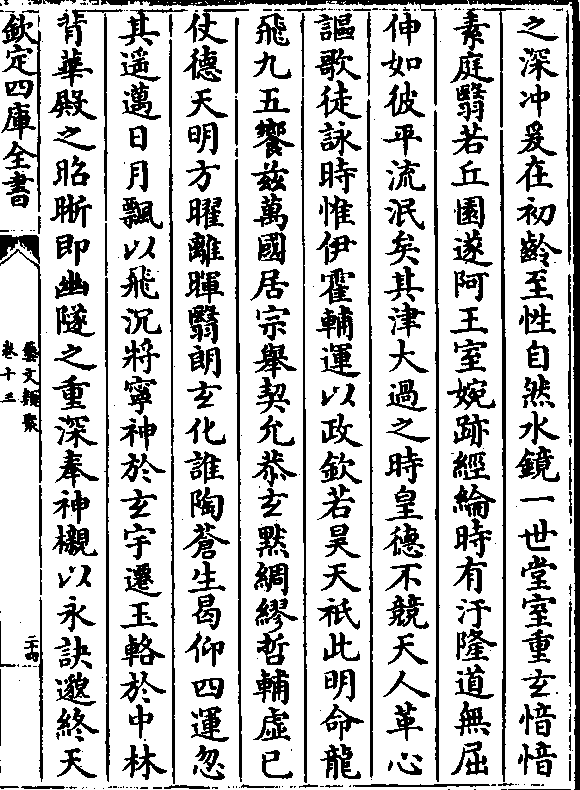 之深冲爰在初齡至性自然水鏡一世堂室重玄愔愔
素庭翳若丘園遂阿王室婉跡經綸時有汙隆道無屈
伸如彼平流泯矣其津大過之時皇德不競天人革心
謳歌徒詠時惟伊霍輔運以政欽若昊天祇此明命龍
飛九五饗兹萬國居宗舉契允恭玄默綢繆哲輔虛已
仗德天明方曜離暉翳朗玄化誰陶蒼生曷仰四運忽
其遥邁日月飄以飛沉將寧神於玄宇遷玉輅於中林
背華殿之昭晣即幽隧之重深奉神櫬以永訣邈終天
欽定四庫全書
藝文類聚
卷十三
二十四